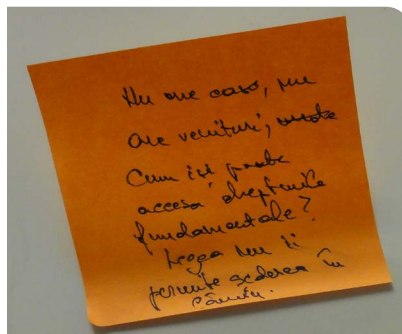 Nu are casă, nu
are venituri,
Cum își poate
accesa drepturile
fundamentale?
Legea nu îi
permite șederea în
cămin.